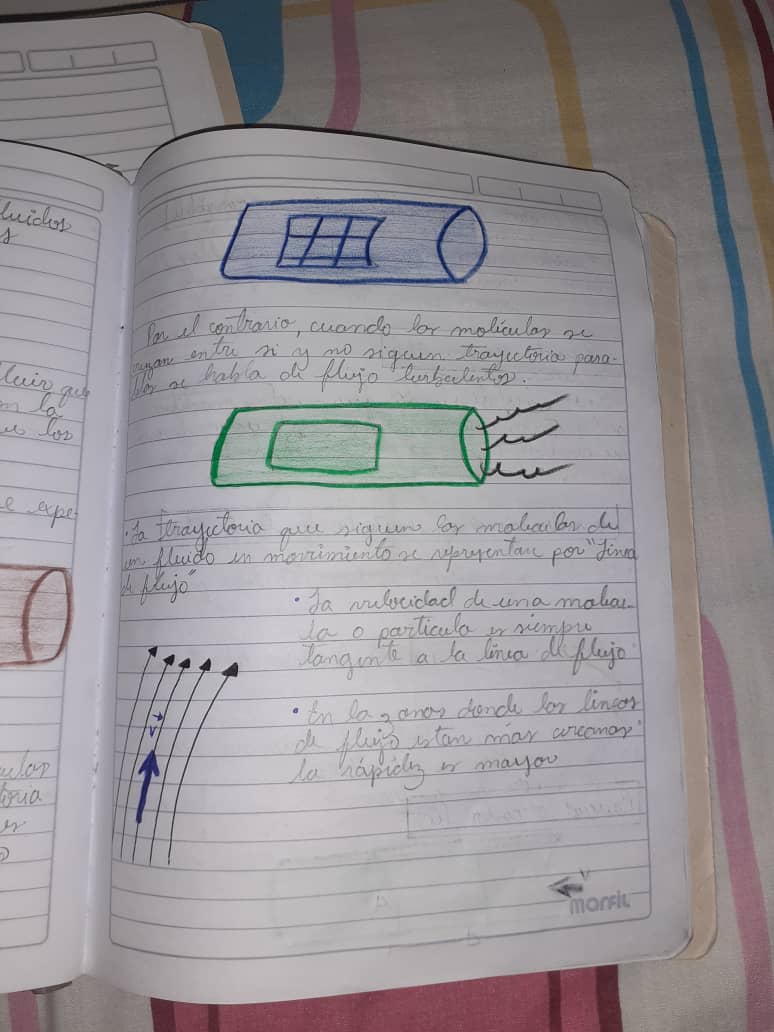 luidos
s
luir que
n la
e los
e expe-
ular
toria
er
o
Por el contrario, cuando las moléculas se
cruzan entre si y no siguen trayectoria para-
las se habla de flujo turbulentos.
• La trayectoria que siguen las moleculas de
un fluido en movimiento se representan por "linea
de flujo"
• La velocidad de una molecu-
la o particula es siempre
tangente a la línea de flujo
• En la zonas donde las lineas
de flujo estan más cercanas
la rápidez es mayor
v
v
MARFIL